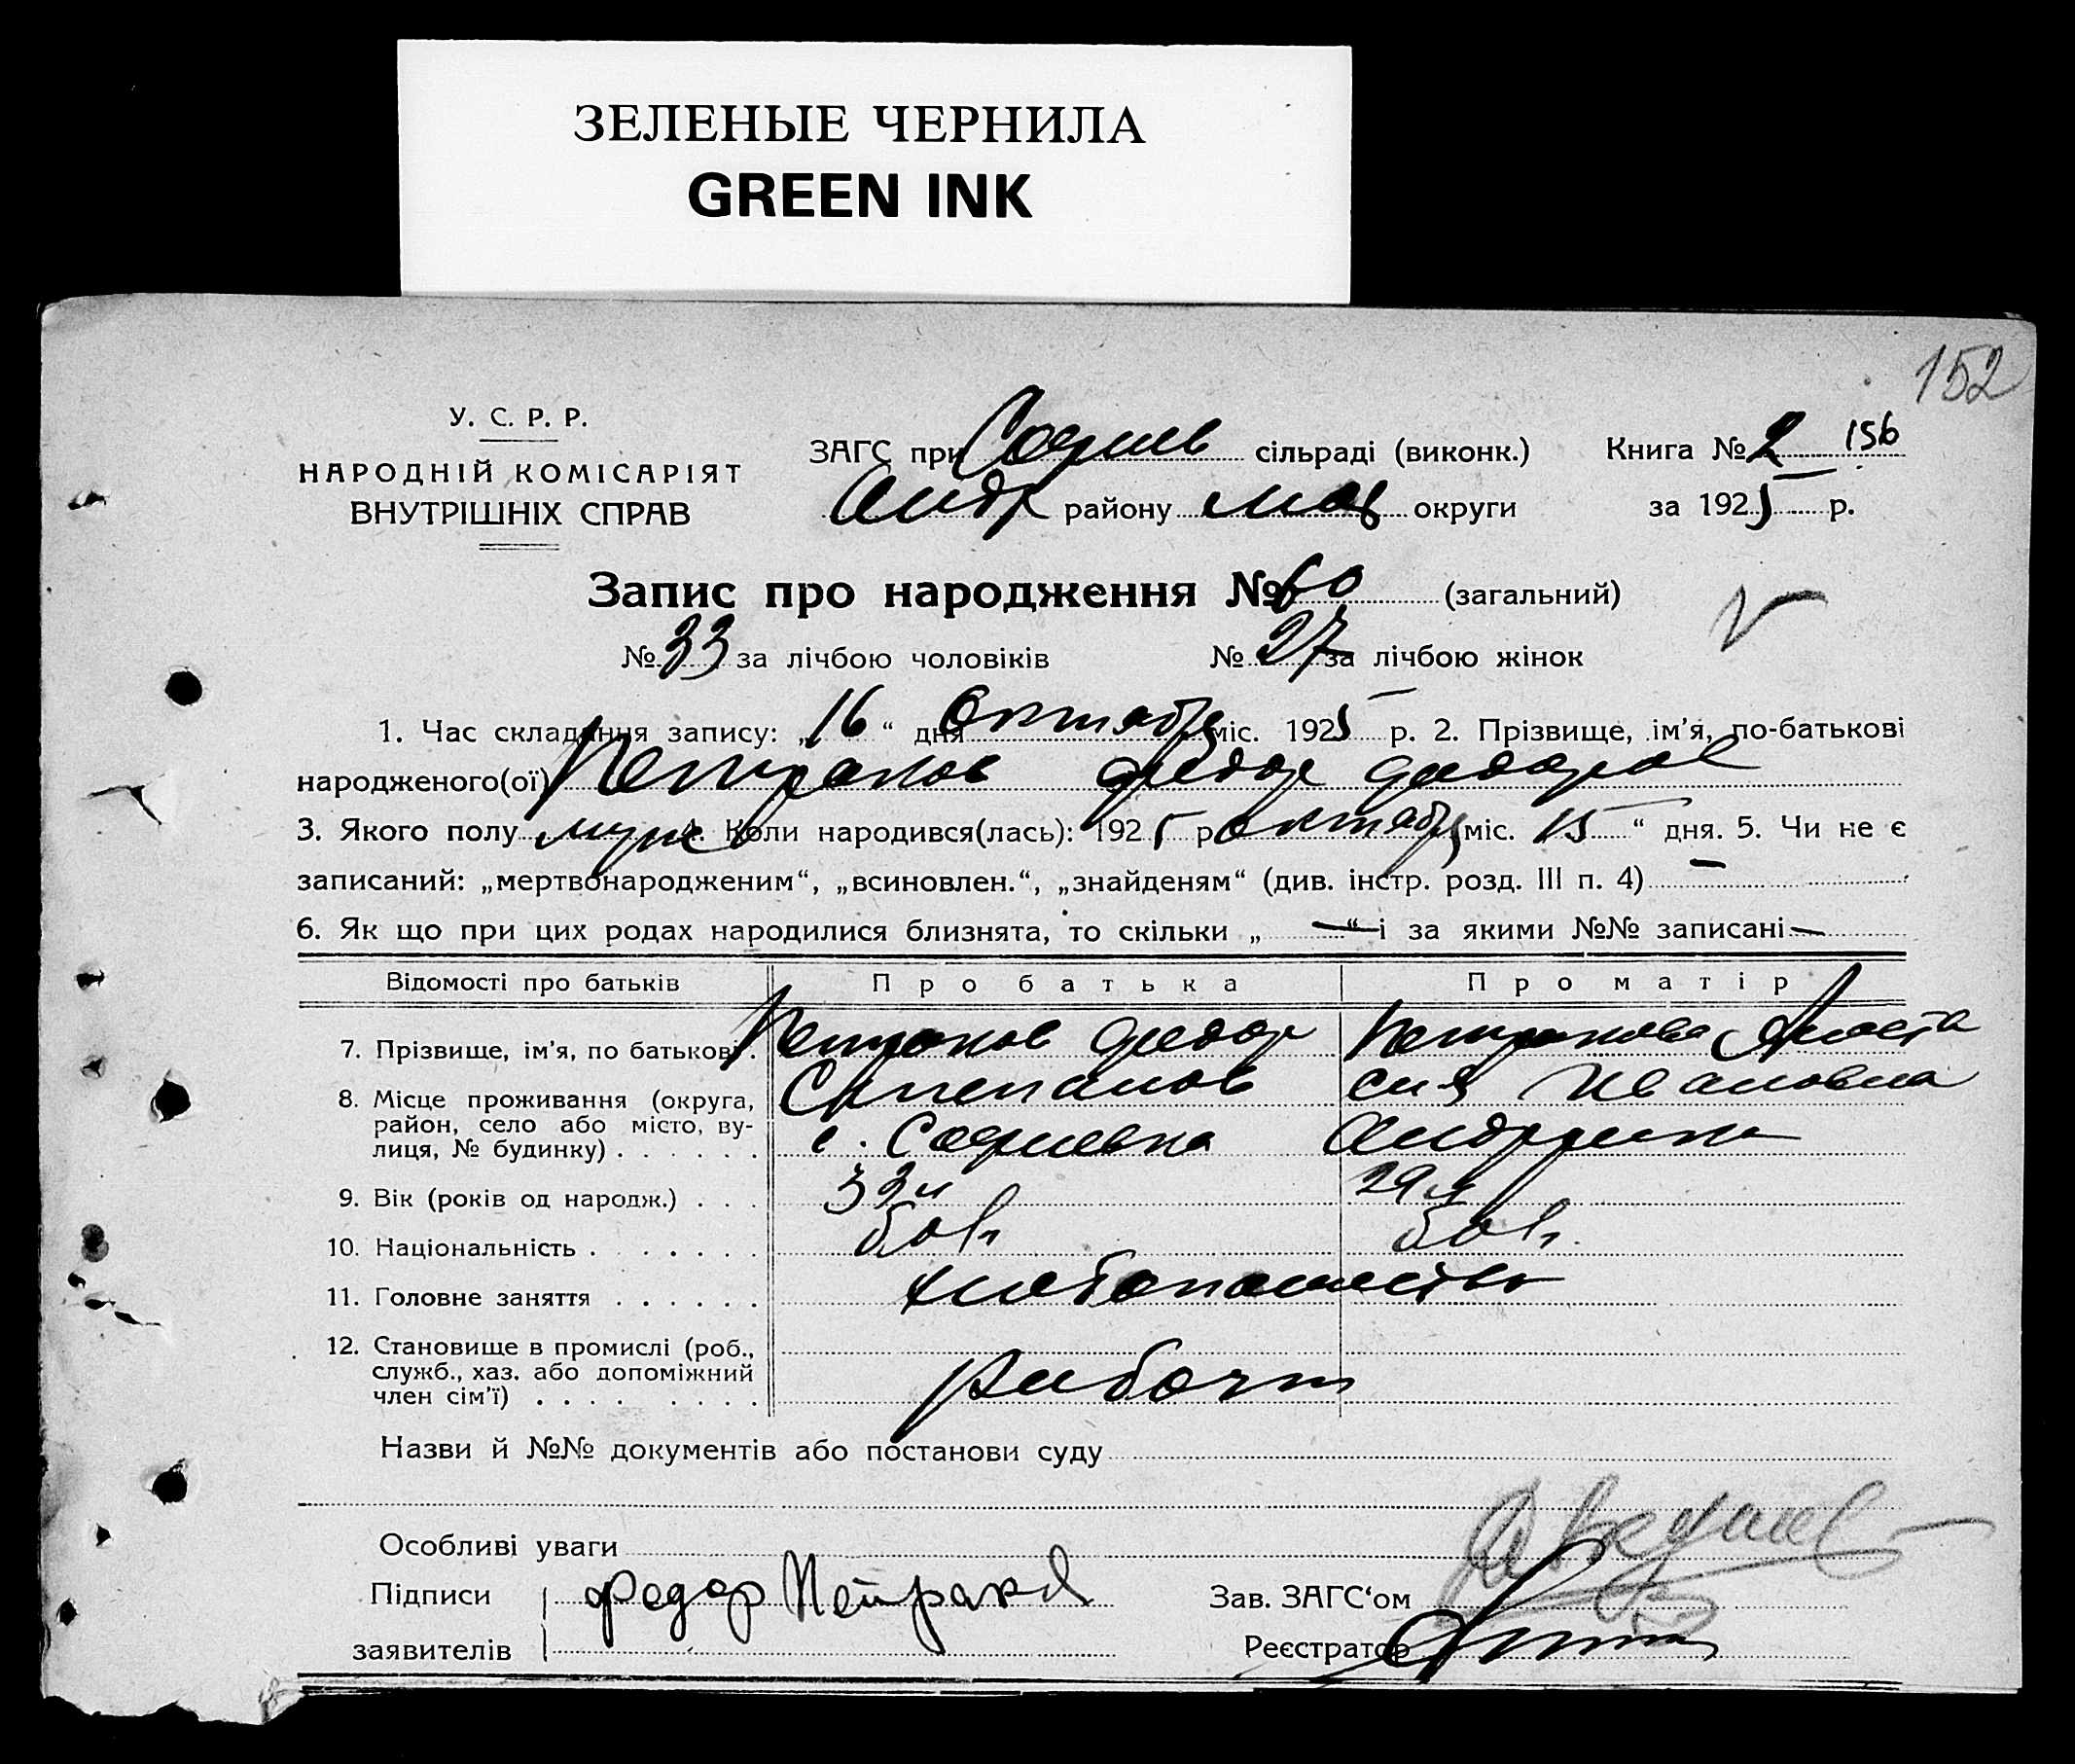 ЗЕЛЕНЫЕ ЧЕРНИЛА
GREEN INK
152
У. С. Р. Р.
НАРОДНІЙ КОМІСАРІЯТ
ВНУТРІШНІХ СПРАВ
ЗАГС при Софиев сільраді (виконк.)
Андр району округи
Книга № 2 156
за 1925 р.
Запис про народження № 60 (загальний)
№ 33 за лічбою чоловіків № 27 за лічбою жінок
1. Час складання запису: „16“ дня Октября міс. 1925 р. 2. Прізвище, ім'я, по-батькові
народженого(ої) Петраков Федор Федоров
3. Якого полу муж 4. Коли народився(лась): 1925 р октября міс. 15 “ дня. 5. Чи не є
записаний: „мертвонародженим“, „всиновлен.“, „знайденям“ (див. інстр. розд. III п. 4) —
6. Як що при цих родах народилися близнята, то скільки „ — “ і за якими №№ записані —
Відомості про батьків Про батька Про матір
7. Прізвище, ім'я, по батькові . Петраков Федор Петракова Анаста
Степанов сия Ивановна
8. Місце проживання (округа,
район, село або місто, ву-
лиця, № будинку) . . . . . . с. Софиевка
9. Вік (років од народж.) . . . 33 29
10. Національність . . . . . . . болг болг.
11. Головне заняття . . . . . . хлебопашество
12. Становище в промислі (роб.,
служб., хаз. або допоміжний
член сім'ї) . . . . . . . .
Назви й №№ документів або постанови суду
Особливі уваги
Підписи
заявителів
Федор Петраков
Зав. ЗАГС'ом
Реєстратор